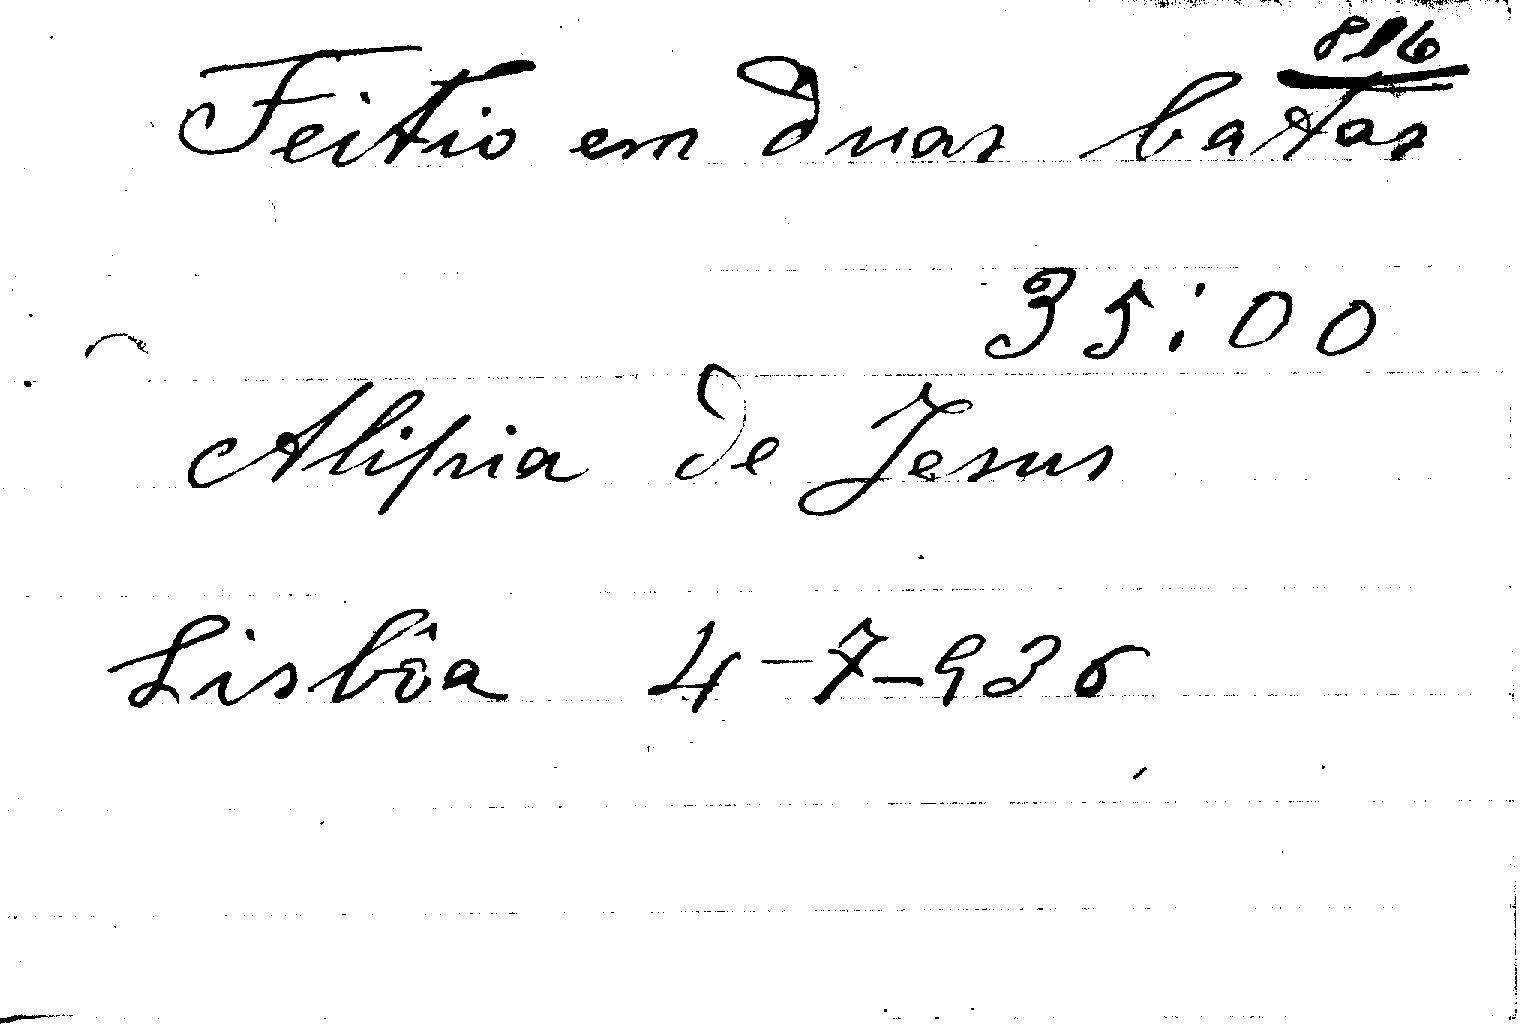 816
Feitio em duas batas
35:00
Alipia de Jesus
Lisbôa 4-7-936